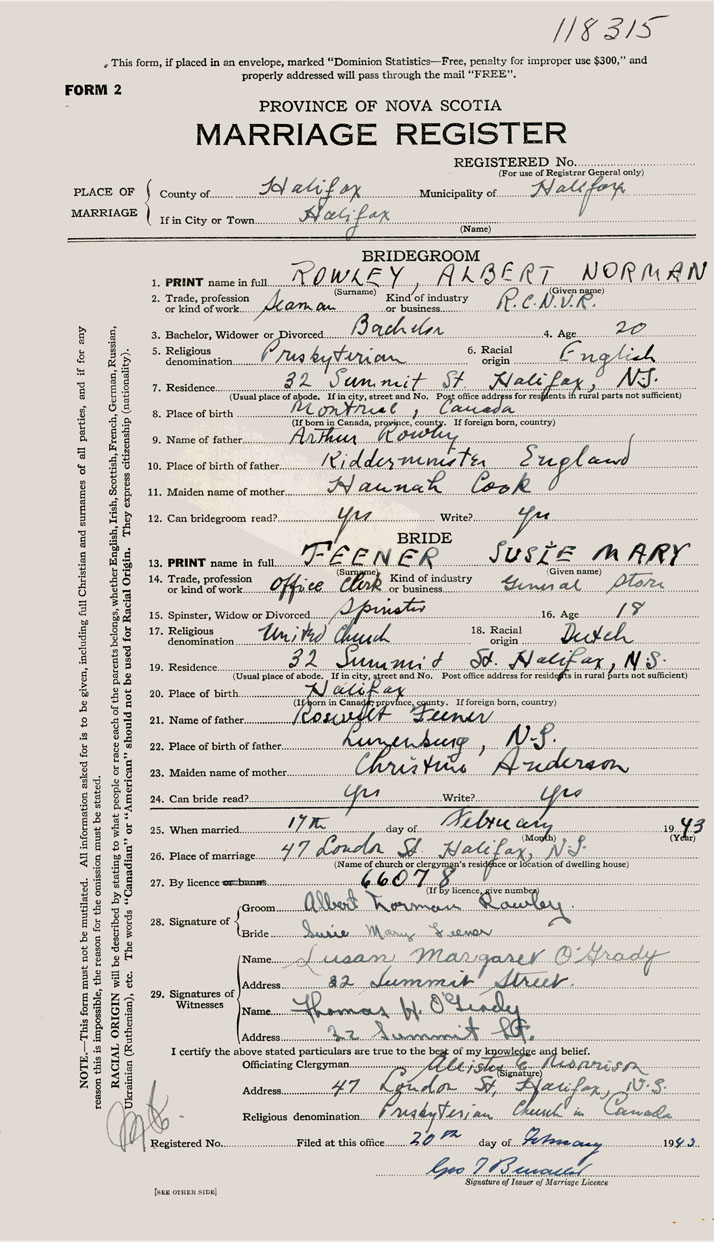 118315
This form, if placed in an envelope, marked "Dominion Statistics—Free, penalty for improper use $300," and
properly addressed will pass through the mail "FREE".
FORM 2
PROVINCE OF NOVA SCOTIA
MARRIAGE REGISTER
REGISTERED No.
(For use of Registrar General only)
PLACE OF MARRIAGE
County of Halifax Municipality of Halifax
If in City or Town Halifax
(Name)
BRIDEGROOM
1. PRINT name in full ROWLEY, ALBERT NORMAN
(Surname) (Given name)
2. Trade, profession or kind of work Seaman Kind of industry or business R.C.N.V.R.
3. Bachelor, Widower or Divorced Bachelor 4. Age 20
5. Religious denomination Presbyterian 6. Racial origin English
7. Residence 32 Summit St. Halifax, N.S.
(Usual place of abode. If in city, street and No. Post office address for residents in rural parts not sufficient)
8. Place of birth Montreal, Canada
(If born in Canada, province, county. If foreign born, country)
9. Name of father Arthur Rowley
10. Place of birth of father Kidderminister England
11. Maiden name of mother Hannah Cook
12. Can bridegroom read? yes Write? yes
BRIDE
13. PRINT name in full FEENER SUSIE MARY
(Surname) (Given name)
14. Trade, profession or kind of work Office Clerk Kind of industry or business General Store
15. Spinster, Widow or Divorced Spinster 16. Age 18
17. Religious denomination United Church 18. Racial origin Dutch
19. Residence 32 Summit St. Halifax, N.S.
(Usual place of abode. If in city, street and No. Post office address for residents in rural parts not sufficient)
20. Place of birth Halifax
(If born in Canada, province, county. If foreign born, country)
21. Name of father Feener
22. Place of birth of father Lunenburg, N.S.
23. Maiden name of mother Christine Anderson
24. Can bride read? yes Write? yes
25. When married 17th day of February 1943
(Month) (Year)
26. Place of marriage 47 London St. Halifax, N.S.
(Name of church or clergyman's residence or location of dwelling house)
27. By licence or banns 66078
(If by licence, give number)
28. Signature of
Groom Albert Norman Rowley.
Bride Susie Mary Feener
29. Signatures of Witnesses
Name Susan Margaret O'Grady
Address 32 Summit Street.
Name Thomas H. O'Grady
Address 32 Summit St.
I certify the above stated particulars are true to the best of my knowledge and belief.
Officiating Clergyman Morrison
(Signature)
Address 47 London St, Halifax, N.S.
Religious denomination Presbyterian Church in Canada
Registered No. Filed at this office 20th day of February 1943
Signature of Issuer of Marriage Licence
[SEE OTHER SIDE]
NOTE.—This form must not be mutilated. All information asked for is to be given, including full Christian and surnames of all parties, and if for any
reason this is impossible, the reason for the omission must be stated.
RACIAL ORIGIN will be described by stating to what people or race each of the parents belongs, whether English, Irish, Scottish, French, German, Russian,
Ukrainian (Ruthenian), etc. The words "Canadian" or "American" should not be used for Racial Origin. They express citizenship (nationality).